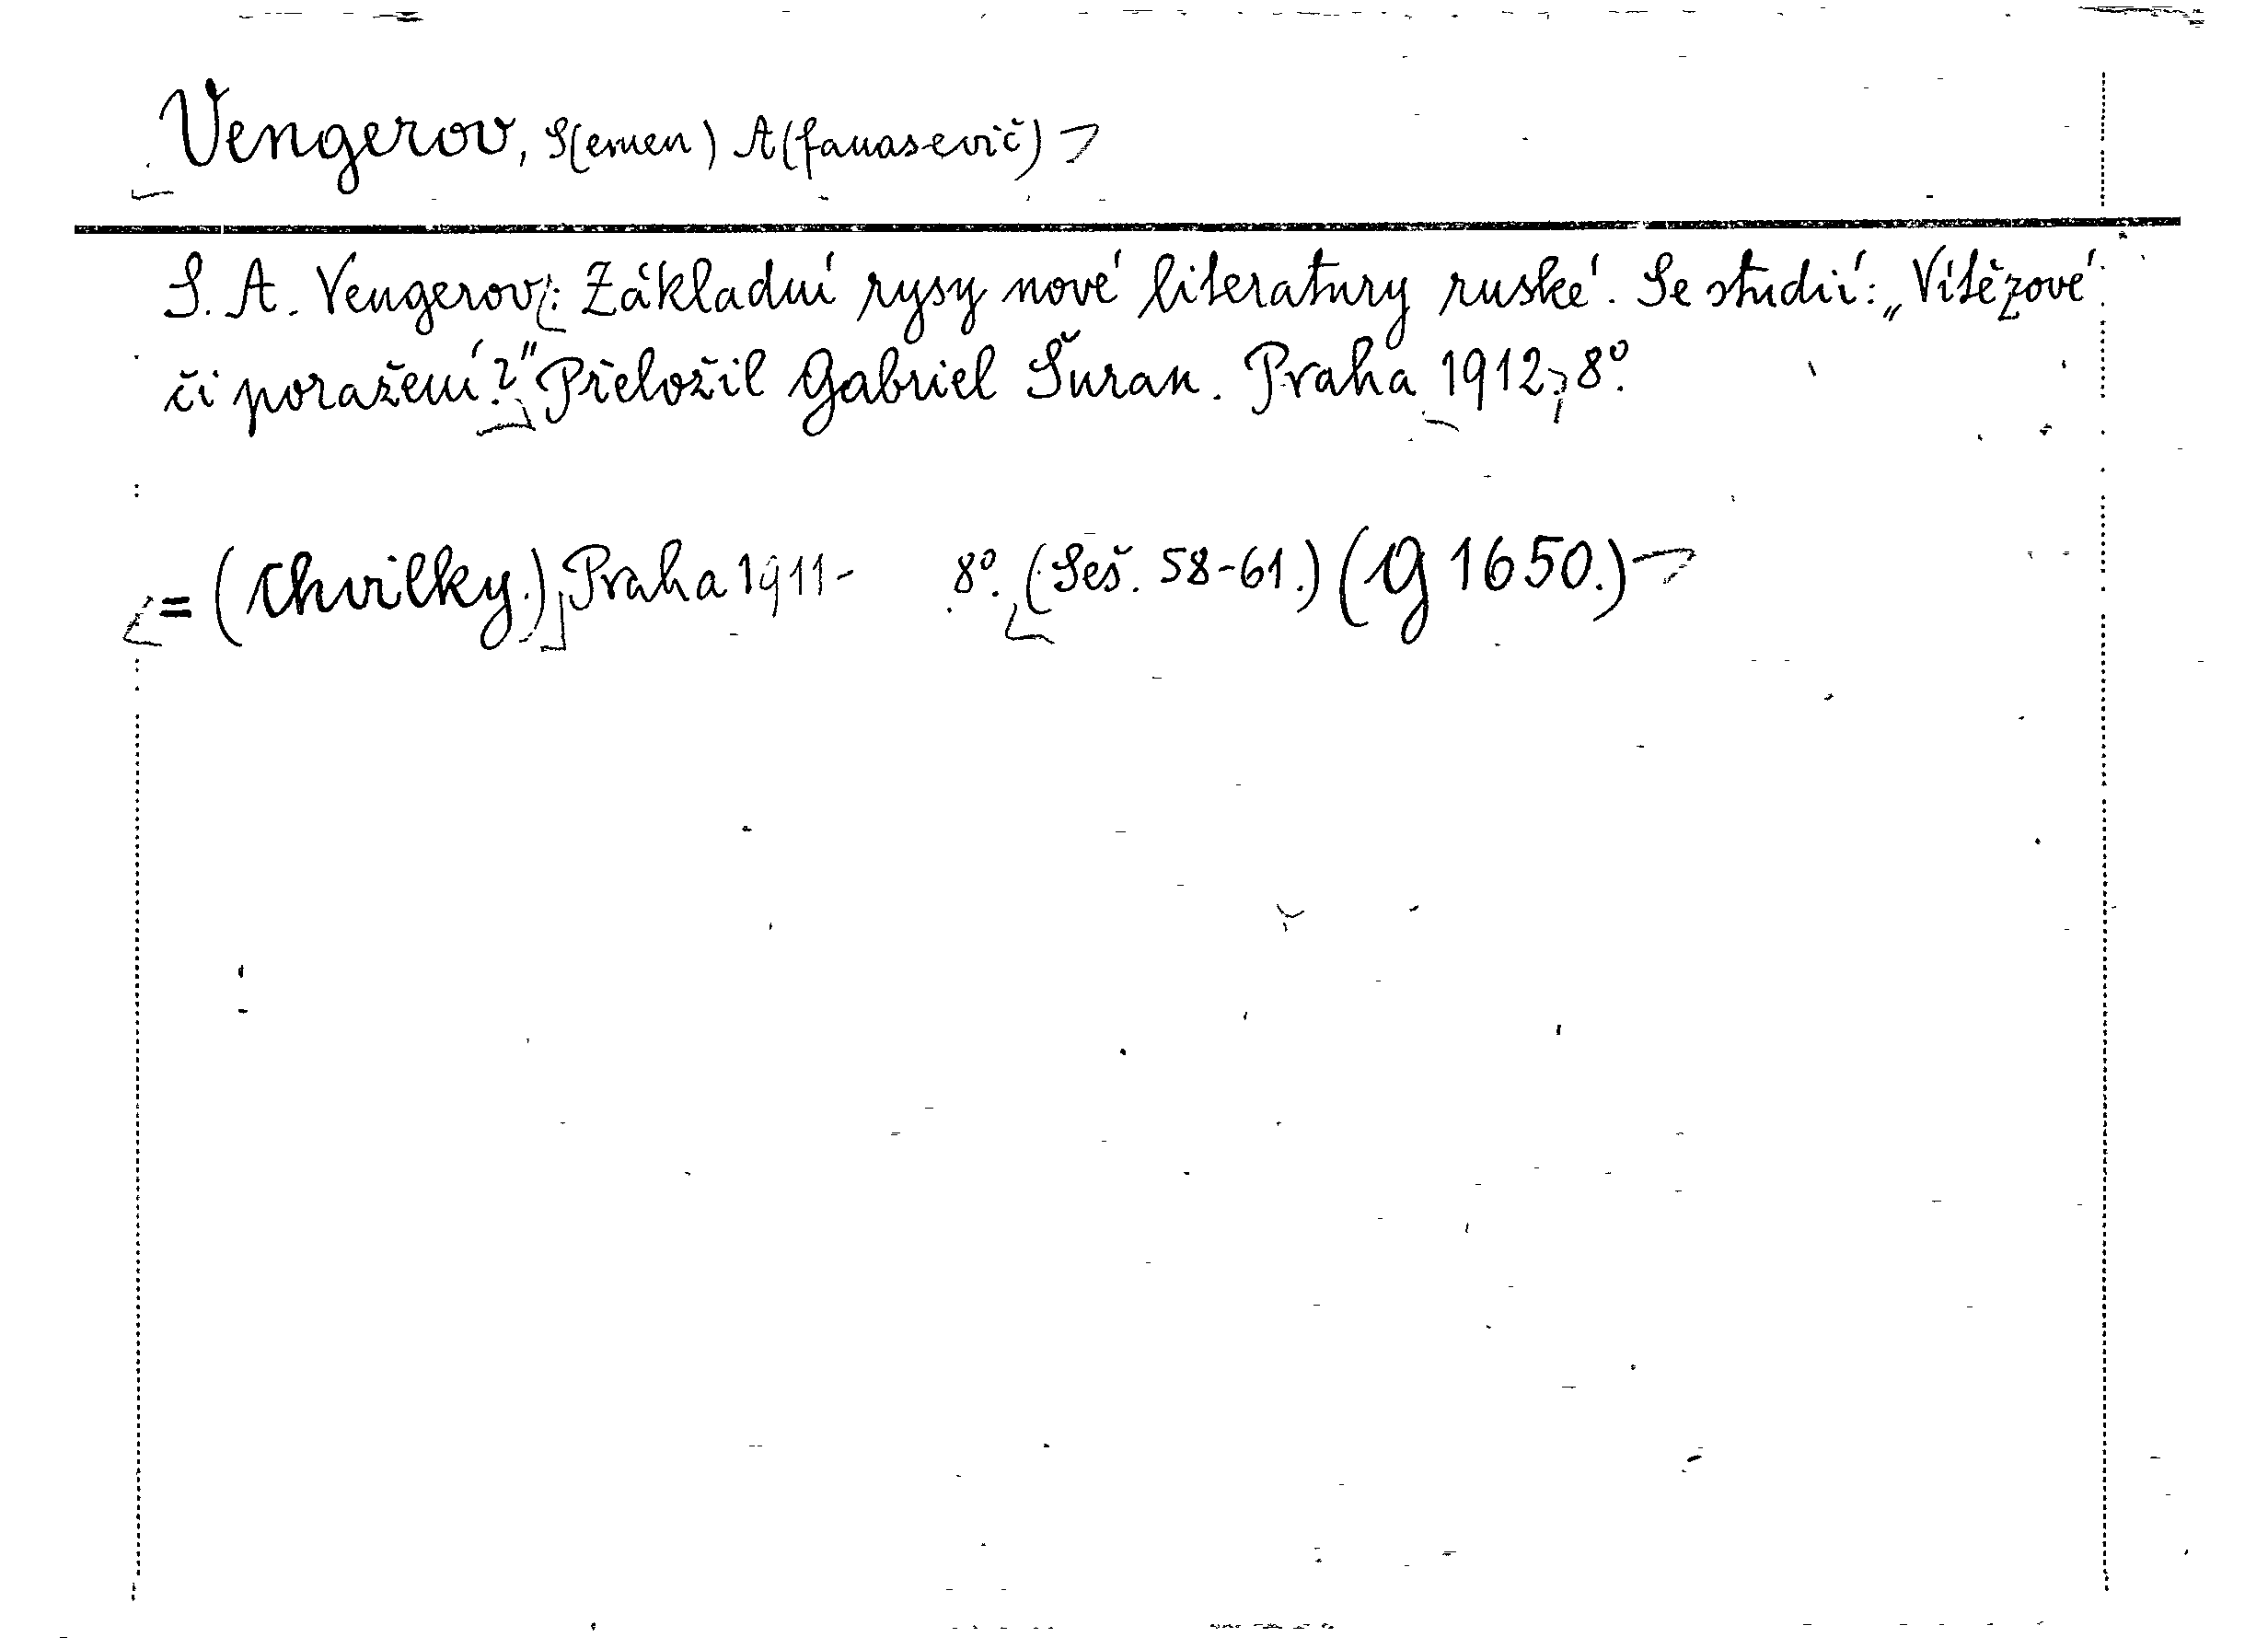 Vengerov, S(emen) A(fanasevič)
S. A. Vengerov: Základní rysy nové literatury ruské. Se studií: „Vítězové
či poražení?" Přeložil Gabriel Šuran. Praha 1912, 8°.
= (Chvilky.) Praha 1911- 8°. (Seš. 58-61.) (G 1650.)